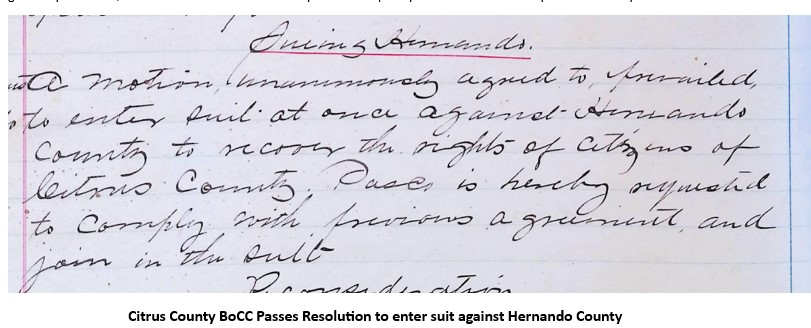 Suing Hernando.
A motion, unanimously agreed to, prevailed,
to enter suit at once against Hernando
County to recover the rights of citizens of
Citrus County. Pasco is hereby requested
to comply with previous agreement, and
join in the suit
Reconsideration
Citrus County BoCC Passes Resolution to enter suit against Hernando County